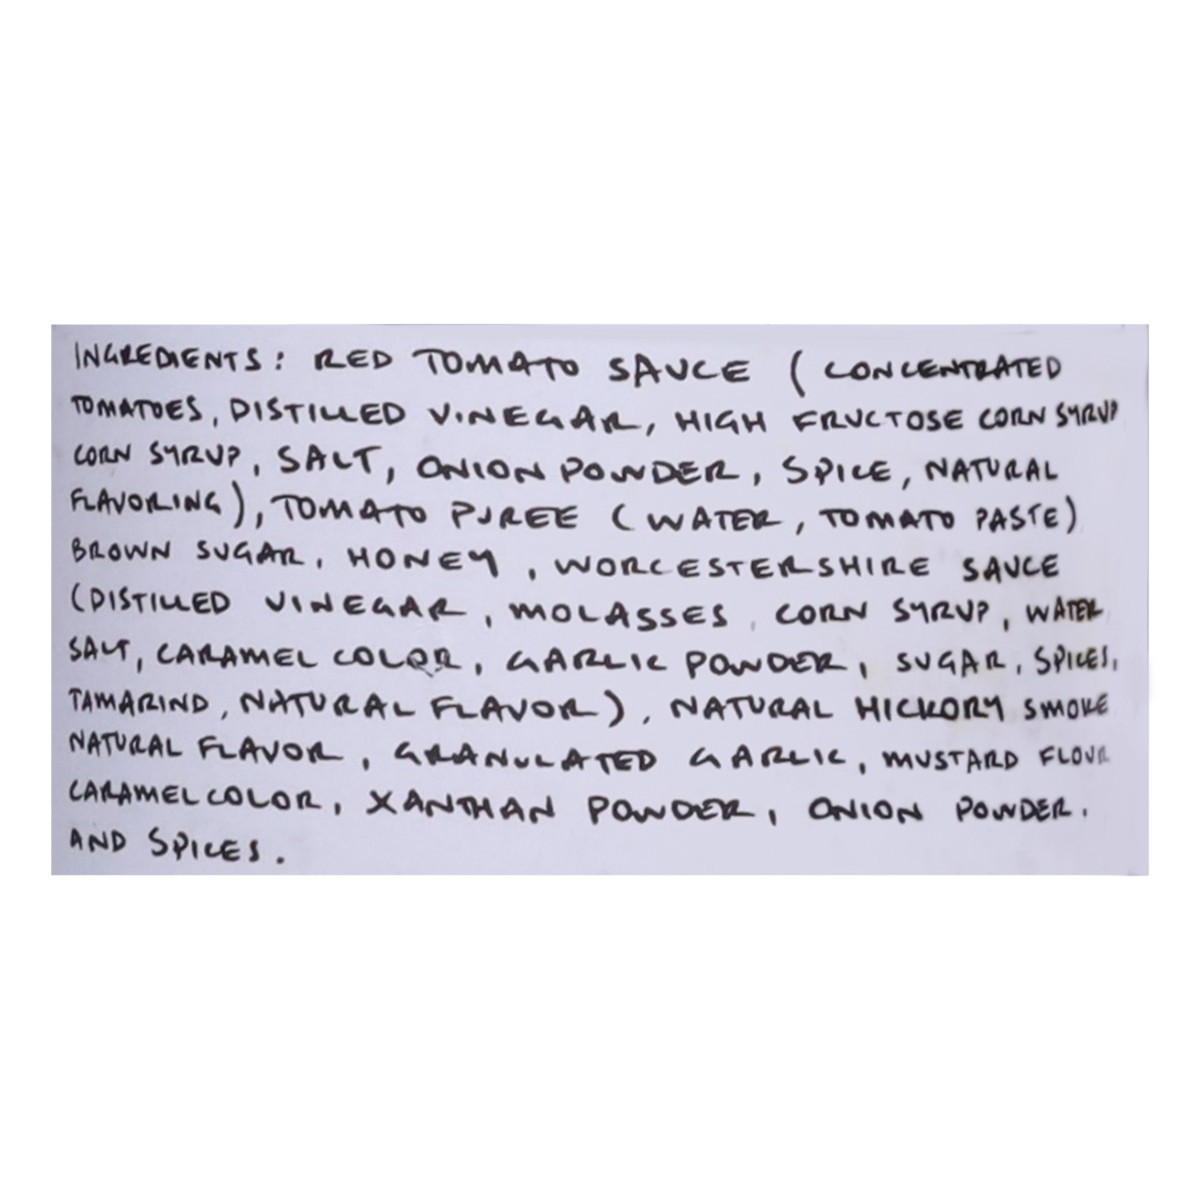 INGREDIENTS: RED TOMATO SAUCE (CONCENTRATED
TOMATOES, DISTILLED VINEGAR, HIGH FRUCTOSE CORN SYRUP
CORN SYRUP, SALT, ONION POWDER, SPICE, NATURAL
FLAVORING), TOMATO PUREE (WATER, TOMATO PASTE)
BROWN SUGAR, HONEY, WORCESTERSHIRE SAUCE
(DISTILLED VINEGAR, MOLASSES, CORN SYRUP, WATER
SALT, CARAMEL COLOR, GARLIC POWDER, SUGAR, SPICES,
TAMARIND, NATURAL FLAVOR), NATURAL HICKORY SMOKE
NATURAL FLAVOR, GRANULATED GARLIC, MUSTARD FLOUR
CARAMEL COLOR, XANTHAN POWDER, ONION POWDER,
AND SPICES.